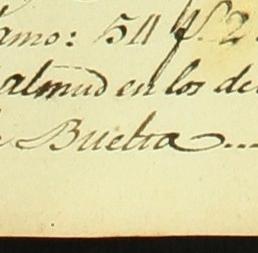 amo: 54 f. 2
almud en los de
Buelta ...